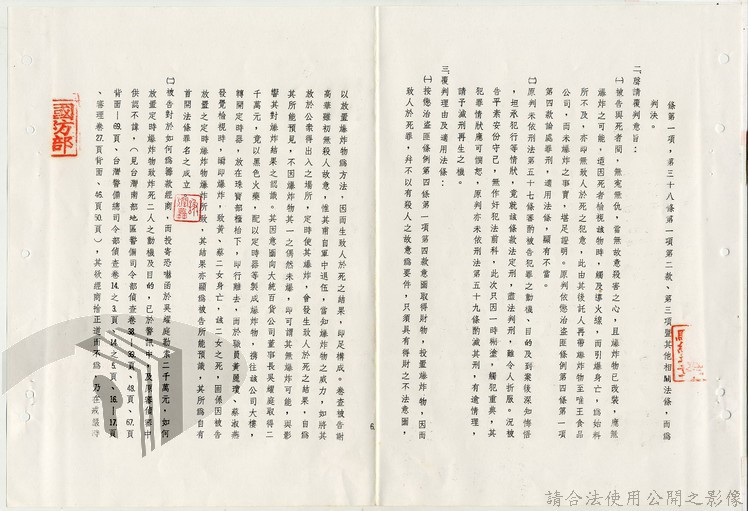 條第一項，第三十八條第一項第二款、第三項暨其他相關法條，而爲
判決。
二、聲請覆判意旨：
㈠被告與死者間，無寃無仇，當無故意殺害之心，且爆炸物已改裝，應無
爆炸之可能，這因死者檢視該物時，觸及導火線，而引爆身亡，爲始料
所不及，亦即無致人於死之犯意，此由其後託人再帶爆炸物至唯王食品
公司，而未爆炸之事實，堪足證明。原判依懲治盜匪條例第四條第一項
第四款論處罪刑，適用法條，顯有不當。
㈡原判未依刑法第五十七條審酌被告犯罪之動機、目的及到案後深知悔悟
，坦承犯行等情狀，竟就該條款法定刑，盡法判刑，難令人折服。況被
告平素安份守己，無作奸犯法前科，此次只因一時糊塗，觸犯重典，其
犯罪情狀應可憫恕，原判亦未依刑法第五十九條酌減其刑，有違情理，
請予減刑再生之機。
三、覆判理由及適用法條：
㈠按懲治盜匪條例第四條第一項第四款意圖取得財物，投置爆炸物，因而
致人於死罪，幷不以有殺人之故意爲要件，只須具有得財之不法意圖，
6
以放置爆炸物爲方法，因而生致人於死之結果，即足構成。卷查被告謝
高華雖初無殺人故意，惟其甫自軍中退伍，當知爆炸物之威力，如將其
放於公衆得出入之場所，定時使其爆炸，會發生致人於死之結果，自爲
其所能預見，不因爆炸物其一之偶然未爆，即可謂其無爆炸可能，與影
響其對爆炸結果之認識。其因意圖向大統百貨公司董事長吳耀庭取得二
千萬元，竟以黑色火藥，配以定時器等製成爆炸物，携往該公司大樓，
轉開定時器，放在珠寶部櫃枱下，即行離去，而於職員黃麗璋、蔡淑燕
發覺檢視時，瞬即爆炸，致黃、蔡二女身亡，該二女之死，固係因被告
放置之定時爆炸物爆炸所致，其結果亦顯爲被告所能預識，其所爲自有
首開法條罪名之成立。
㈡被告對於如何爲籌款經商，而投寄恐嚇函於吳耀庭勒索二千萬元，如何
放置定時爆炸物致炸死二人之動機及目的，已於警訊中，及原審偵審中
供認不諱，（見台灣南部地區警備司令部偵查卷38.—39.頁、48.頁、67.頁
背面—69.頁，台灣警備總司令部偵查卷14.之3.頁、14.之5.頁、16.—17.頁
、審理卷27.頁背面、46.頁50.頁），其欲經商捨正道而不爲，乃在戒嚴時
國防部
請合法使用公開之影像